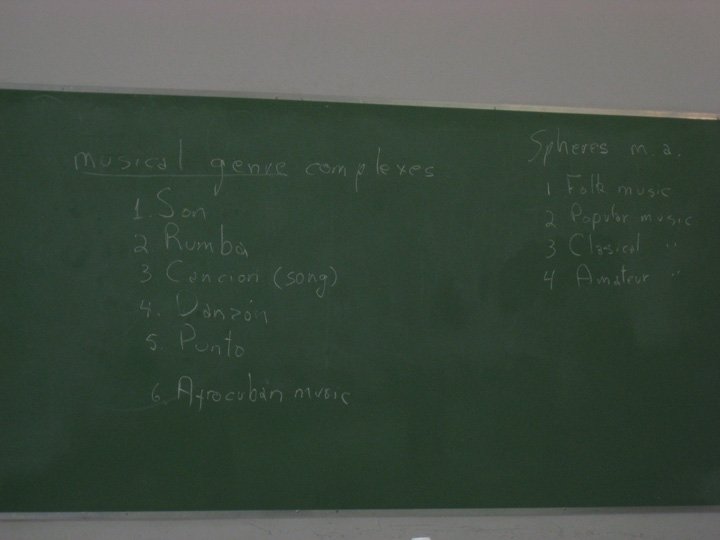 musical genre complexes
1. Son
2. Rumba
3 Cancion (song)
4. Danzón
5. Punto
6. Afrocuban music
Spheres m.a.
1 Folk music
2 Popular music
3 Clasical "
4 Amateur "